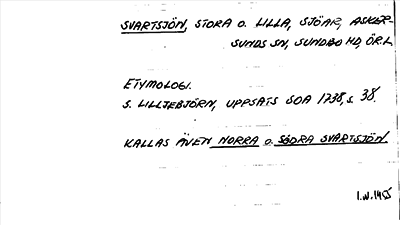 SVARTSJÖN, STORA O. LILLA, SJÖAR, ASKER-
SUNDS SN, SUNDBO HD, ÖR.L.
ETYMOLOGI.
S. LILLJEBJÖRN, UPPSATS SOA 1738, s. 38.
KALLAS ÄVEN NORRA O. SÖDRA SVARTSJÖN.